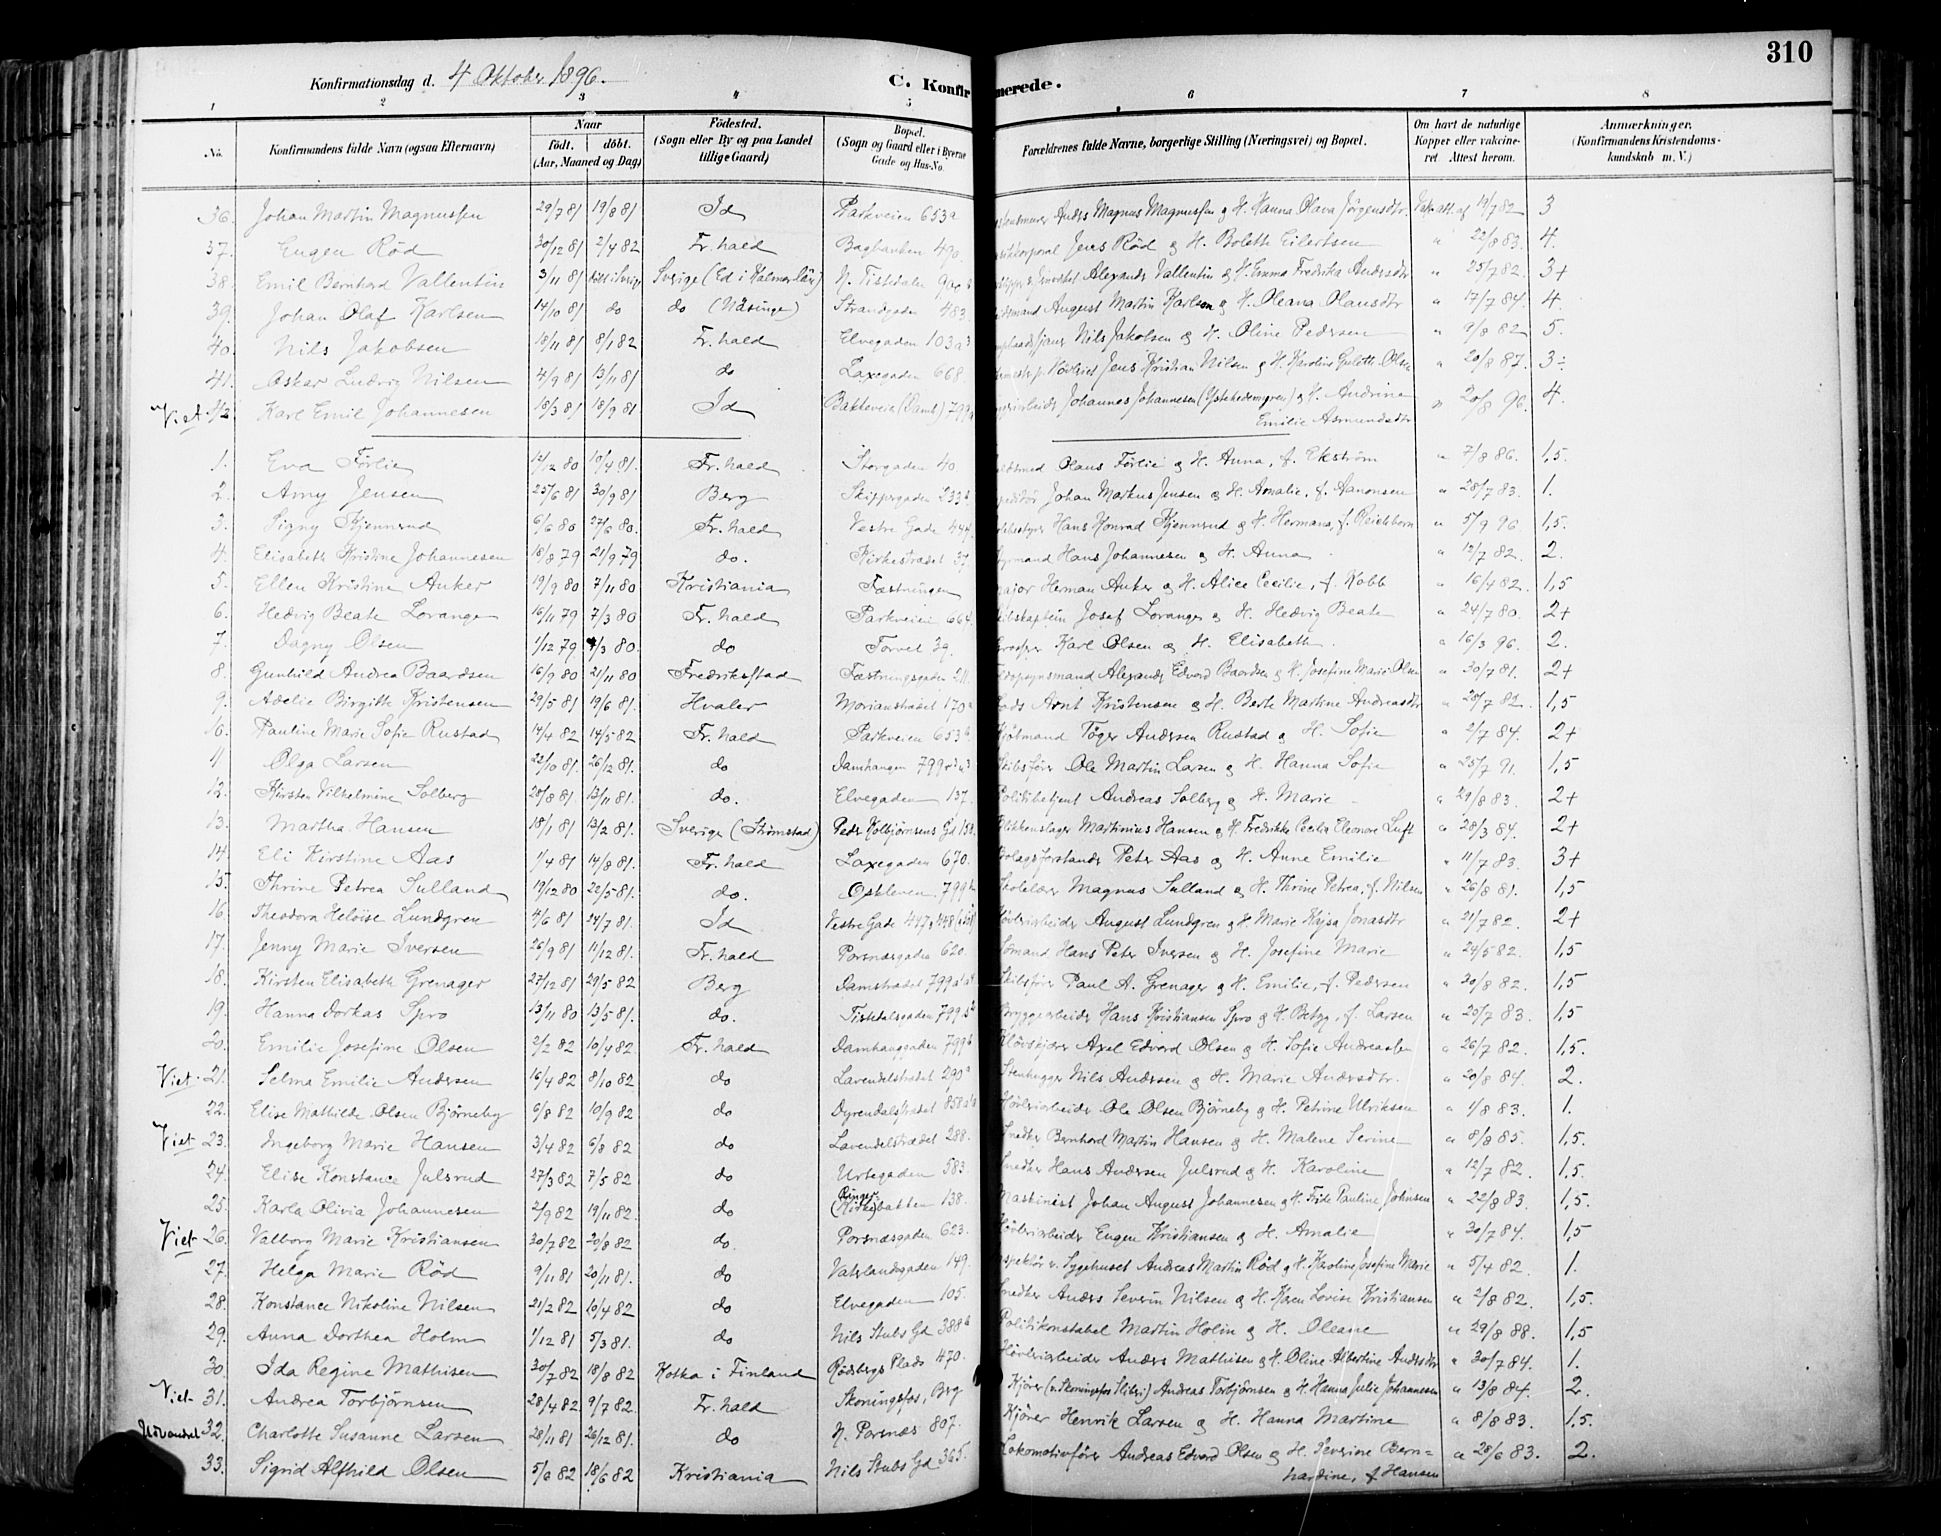 310
Konfirmationsdag d. 4 Oktober 1896.
C. Konfirmerede.
1 2 3 4 5 6 7 8
No. Konfirmandens fulde Navn (ogsaa Efternavn) Naar født. døbt. (Aar, Maaned og Dag) Fødested. (Sogn eller By og paa Landet tillige Gaard) Bopæl. (Sogn og Gaard eller i Byerne Gade og Hus-No. Forældrenes fulde Navne, borgerlige Stilling (Næringsvei) og Bopæl. Om havt de naturlige Kopper eller vakcineret Attest herom. Anmærkninger. (Konfirmandens Kristendomskundskab m. V.)
36. Johan Martin Magnussen 29/7 81 19/8 81 Id Parkveien 653a Anders Magnus Magnussen g H. Hanna Olava Jørgensdtr. Vak. att. af 19/7 82 3
37. Eugen Rød 30/12 81 2/4 82 Fr.hald Baghanken 490. Jens Rød g H. Bolette Eilertsen " 22/8 83. 4.
38. Emil Bernhard Vallentin 3/11 81 Sverige (Ed i Kalmar län) N. Tistedalen Alexander Vallentin g H. Emma Fredrika Andersdtr " 25/7 82. 3+
39. Johan Olaf Karlsen 14/10 81 do do (Näsinge) Strandgaden 483. August Martin Karlsen g H. Oleana Olausdtr " 17/7 84. 4
40. Nils Jakobsen 18/11 81 8/1 82 Fr.hald Elvegaden 103a Nils Jakobsen g H. Oline Pedersen " 9/8 82 5.
41. Oskar Ludvig Nilsen 4/9 81 13/11 81 do Laxegaden 668. Jens Kristian Nilsen g H. Karoline Gulette Olsen " 20/8 87. 3÷
Viet 42. Karl Emil Johannesen 18/3 81 18/9 81 Id Bakkeveien (Damh.) 799 Johannes Johannesen (Ystehedemyren) g H. Andrine " 20/8 96. 4.
Emilie Asmundsdtr
1. Eva Førlie 12/12 80 19/4 81. Fr.hald Storgaden 40 Olaus Førlie g H. Anna, f. Ekström " 7/8 86. 1,5.
2. Amy Jensen 25/6 81 30/9 81 Berg Skippergaden 233a Johan Markus Jensen g H. Amalie, f. Aanonsen " 28/7 83. 1.
3. Signy Kjennerud 6/6 80 27/6 80. Fr.hald Vestre Gade 444. Hans Konrad Kjennerud g H. Hermana, f. Reichborn " 5/9 96. 1,5.
4. Elisabeth Kristine Johannesen 18/8 79 21/9 79 do. Kirkestrædet 37 Styrmand Hans Johannesen g H. Anna " 12/7 82. 2.
5. Ellen Kristine Anker 19/9 80 7/11 80 Kristiania Fæstningen Major Herman Anker g H. Alice Cecilie, f. Kobb " 16/4 82. 1,5
6. Hedvig Beate Lorange 16/11 79 7/3 80 Fr.hald Parkveien 664. Skibskaptein Josef Lorange g H. Hedvig Beate " 24/7 80. 2+
7. Dagny Olsen 1/12 79 /3 80. do Torvet 39. Grosser Karl Olsen g H. Elisabeth. " 16/3 96. 2.
8. Gunhild Andrea Baardsen 16/9 80 21/11 80 Fredriksstad Fæstningsgaden 211. Alexander Edvard Baardsen g H. Josefine Marie Olsen " 30/7 81. 2+
9. Adelie Birgitte Kristensen 29/5 81 19/6 81. Hvaler Morianstrædet 170a Lods Arnt Kristensen g H. Berte Martine Andreasdtr " 28/7 82. 1,5
10. Pauline Marie Sofie Rustad 14/4 82 14/5 82 Fr.hald Parkveien 653a Töger Andersen Rustad g H. Sofie " 2/7 84. 2+
11. Olga Larsen 22/10 81. 26/12 81. do Damhaugen 799 Skibsfører Ole Martin Larsen g H. Hanna Sofie " 25/7 91. 1,5
12. Kirsten Vilhelmine Solberg 28/8 81 13/11 81. do. Elvegaden 137. Politibetjent Andreas Solberg g H. Marie " 29/8 83. 2+
13. Martha Hansen 18/1 81 13/2 81. Sverige (Strömstad) Peder Kolbjørnsens Gd 158. Blikkenslager Martinius Hansen g H. Fredrikke Cecilia Eleonore Luft " 28/3 84. 2+
14. Eli Kirstine Aas 1/4 81 14/8 81. Fr.hald Laxegaden 670. Bolagsforstander Peter Aas g H. Anne Emilie " 11/7 83. 3+
15. Thrine Petrea Sulland 19/12 80 22/5 81. do. Oskleven 799 Skolelærer Magnus Sulland g H. Thrine Petrea, f. Nilsen " 26/8 81. 1,5
16. Theodora Heloise Lundgren 4/6 81 24/7 81. Id Vestre Gade 447 Høvleriarbeider August Lundgren g H. Marie Kajsa Jonasdtr " 21/7 82. 2+
17. Jenny Marie Iversen 26/9 81 11/12 81. Fr.hald Porsnæsgaden 620. Sømand Hans Peter Iversen g H. Josefine Marie " 24/5 82. 1,5
18. Kirsten Elisabeth Grenager 27/12 81 29/5 82 Berg Damstrædet 799 Skibsfører Paul A. Grenager g H. Emilie, f. Pedersen " 30/8 82. 1,5
19. Hanna Dorkas Spro 13/11 80 13/5 81. do. Tistedalsgaden 799 Bryggearbeider Hans Kristiansen Spro g H. Betzy, f. Larsen " 25/7 83. 1,5
20. Emilie Josefine Olsen 2/2 82 10/4 82. Fr.hald Damhauggaden 799b Axel Edvard Olsen g H. Sofie Andreassen " 26/7 82. 1,5.
Viet 21. Selma Emilie Andersen 16/4 82 8/10 82 do Lavendelstrædet 290a Stenhugger Nils Andersen g H. Marie Andersdtr. " 20/8 84. 2.
22. Elise Mathilde Olsen Bjørneby 6/8 82 10/9 82 do Dyrendalstrædet 858 Høvleriarbeider Ole Olsen Bjørneby g H. Petrine Ulriksen " 1/8 83. 1.
Viet 23. Ingeborg Marie Hansen 3/4 82 6/8 82 do Lavendelstrædet 288. Snedker Bernhard Martin Hansen g H. Malene Serine " 8/8 85. 1,5.
24. Elise Konstance Julsrud 27/3 82 7/5 82 do Urtegaden 583. Snedker Hans Andersen Julsrud g H. Karoline " 12/7 82. 1,5.
25. Karla Olivia Johannesen 2/9 82 19/11 82. do (Kirke)bakken 138. Maskinist Johan August Johannesen g H. Frida Pauline Johnsen " 22/8 83. 1,5.
Viet 26. Valborg Marie Kristiansen 30/7 82 20/8 82 do. Porsnæsgaden 623. Høvleriarbeider Eugen Kristiansen g H. Amalie " 30/7 84. 1,5
27. Helga Marie Rød 9/11 81 20/11 81. do Vaterlandsgaden 149. Inspektør v. Sygehuset Andreas Martin Rød g H. Karoline Josefine Marie " 5/4 82. 1.
28. Konstance Nikoline Nilsen 21/2 82 10/4 82 do Elvegaden 105. Snedker Anders Severin Nilsen g H. Karen Lovise Kristiansen " 2/8 82. 1,5.
29. Anna Dorthea Holm 1/12 81 5/3 81. do Nils Stubs Gd 388a Politikonstabel Martin Holm g H. Oleane " 29/8 88. 1,5
30. Ida Regine Mathisen 30/7 82 18/8 82 Kotka i Finland Rødsbergs Plads 470. Høvleriarbeider Anders Mathisen g H. Oline Albertine Andersdtr " 30/7 84. 1.
Viet 31. Andrea Torbjørnsen 28/4 82 9/7 82. Fr.hald Skoningsfos, Berg Kjører (v. Skoningsfos Sliberi) Andreas Torbjørnsen g H. Hanna Julie Johannesen " 13/8 84. 2.
Udvandret 32. Charlotte Susanne Larsen 28/11 81 26/12 81. do N. Porsnæs 807. Kjører Henrik Larsen g H. Hanna Martine " 8/8 83. 1,5.
33. Sigrid Alfhild Olsen 5/6 82 18/6 82 Kristiania Nils Stubs Gd 365. Lokomotivfører Andreas Edvard Olsen g H. Severine Bern=
hardine, f Hansen " 28/6 83. 2.